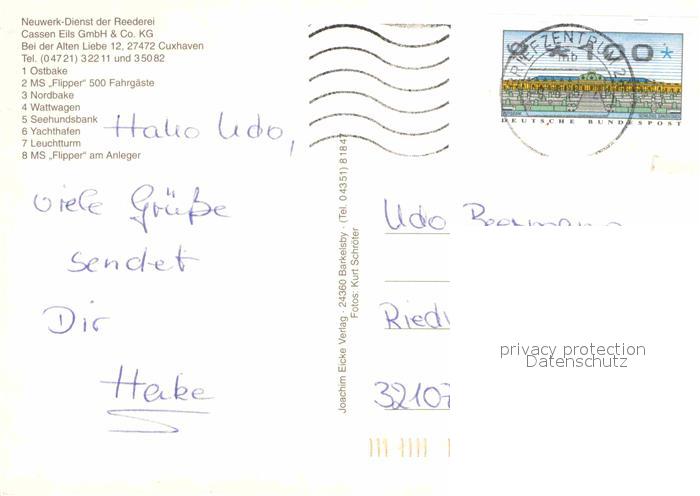 Neuwerk-Dienst der Reederei
Cassen Eils GmbH & Co. KG
Bei der Alten Liebe 12, 27472 Cuxhaven
Tel. (04721) 32211 und 35082
1 Ostbake
2 MS „Flipper" 500 Fahrgäste
3 Nordbake
4 Wattwagen
5 Seehundsbank
6 Yachthafen
7 Leuchtturm
8 MS „Flipper" am Anleger
Hallo Udo,
viele Grüße
sendet
Dir
Heike
Joachim Eicke Verlag · 24360 Barkelsby · (Tel. 04351) 81847
Fotos: Kurt Schröter
BRIEFZENTRUM
mb
100
DEUTSCHE BUNDESPOST
Udo
32107
privacy protection
Datenschutz